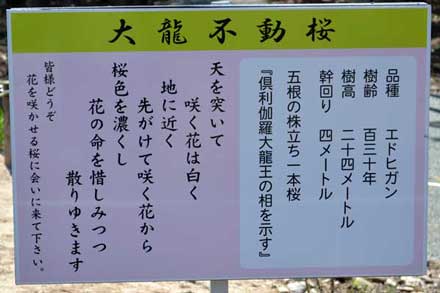 大龍不動桜
品種　エドヒガン
樹齢　百三十年
樹高　二十四メートル
幹回り　四メートル
五根の株立ち一本桜
『倶利伽羅大龍王の相を示す』
天を突いて
咲く花は白く
地に近く
先がけて咲く花から
桜色を濃くし
花の命を惜しみつつ
散りゆきます
皆様どうぞ
花を咲かせる桜に会いに来て下さい。